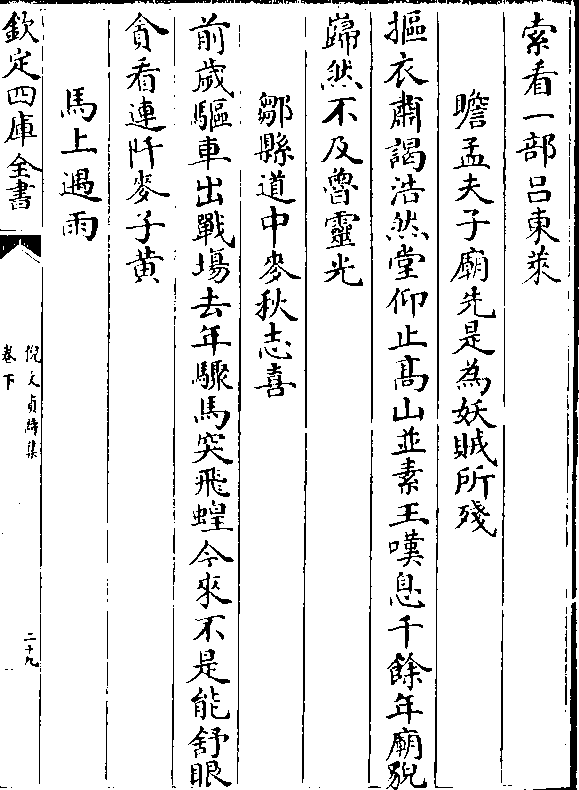 索看一部呂東萊
瞻孟夫子廟先是為妖賊所殘
摳衣肅謁浩然堂仰止髙山並素王嘆息千餘年廟貌
巋然不及魯靈光
鄒縣道中麥秋志喜
前歲驅車出戰塲去年驟馬突飛蝗今來不是能舒眼
貪看連阡麥子黄
馬上遇雨
欽定四庫全書
倪文貞詩集
卷下
二十九